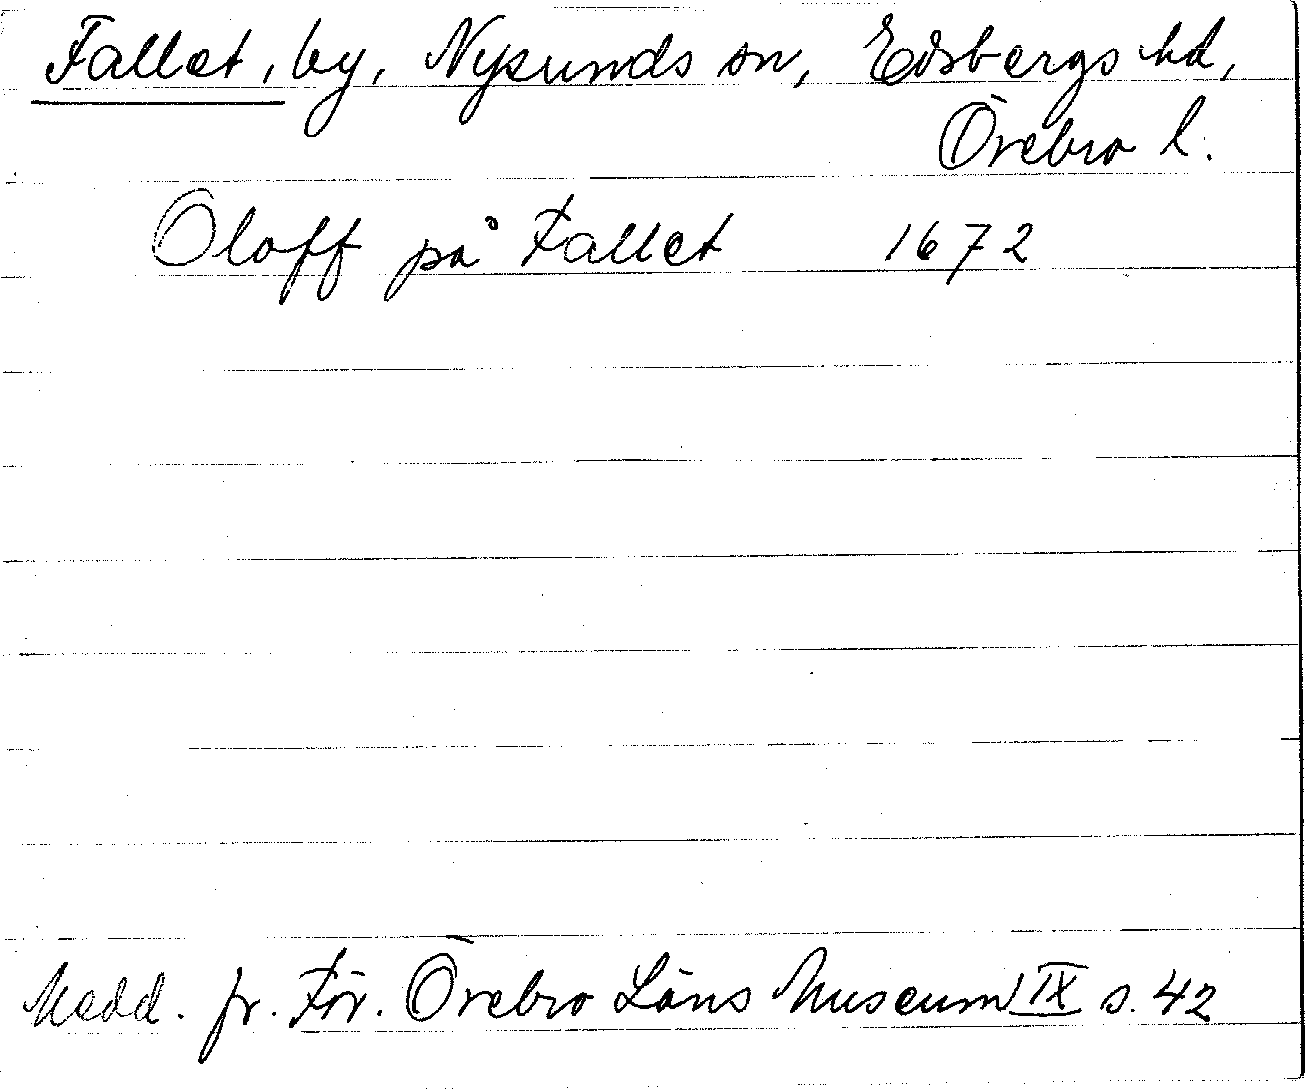 Fallet, by, Nysunds sn, Edsbergs hd,
Örebro l.
Oloff på Fallet 1672
Medd. fr. För. Örebro Läns Museum IX s. 42